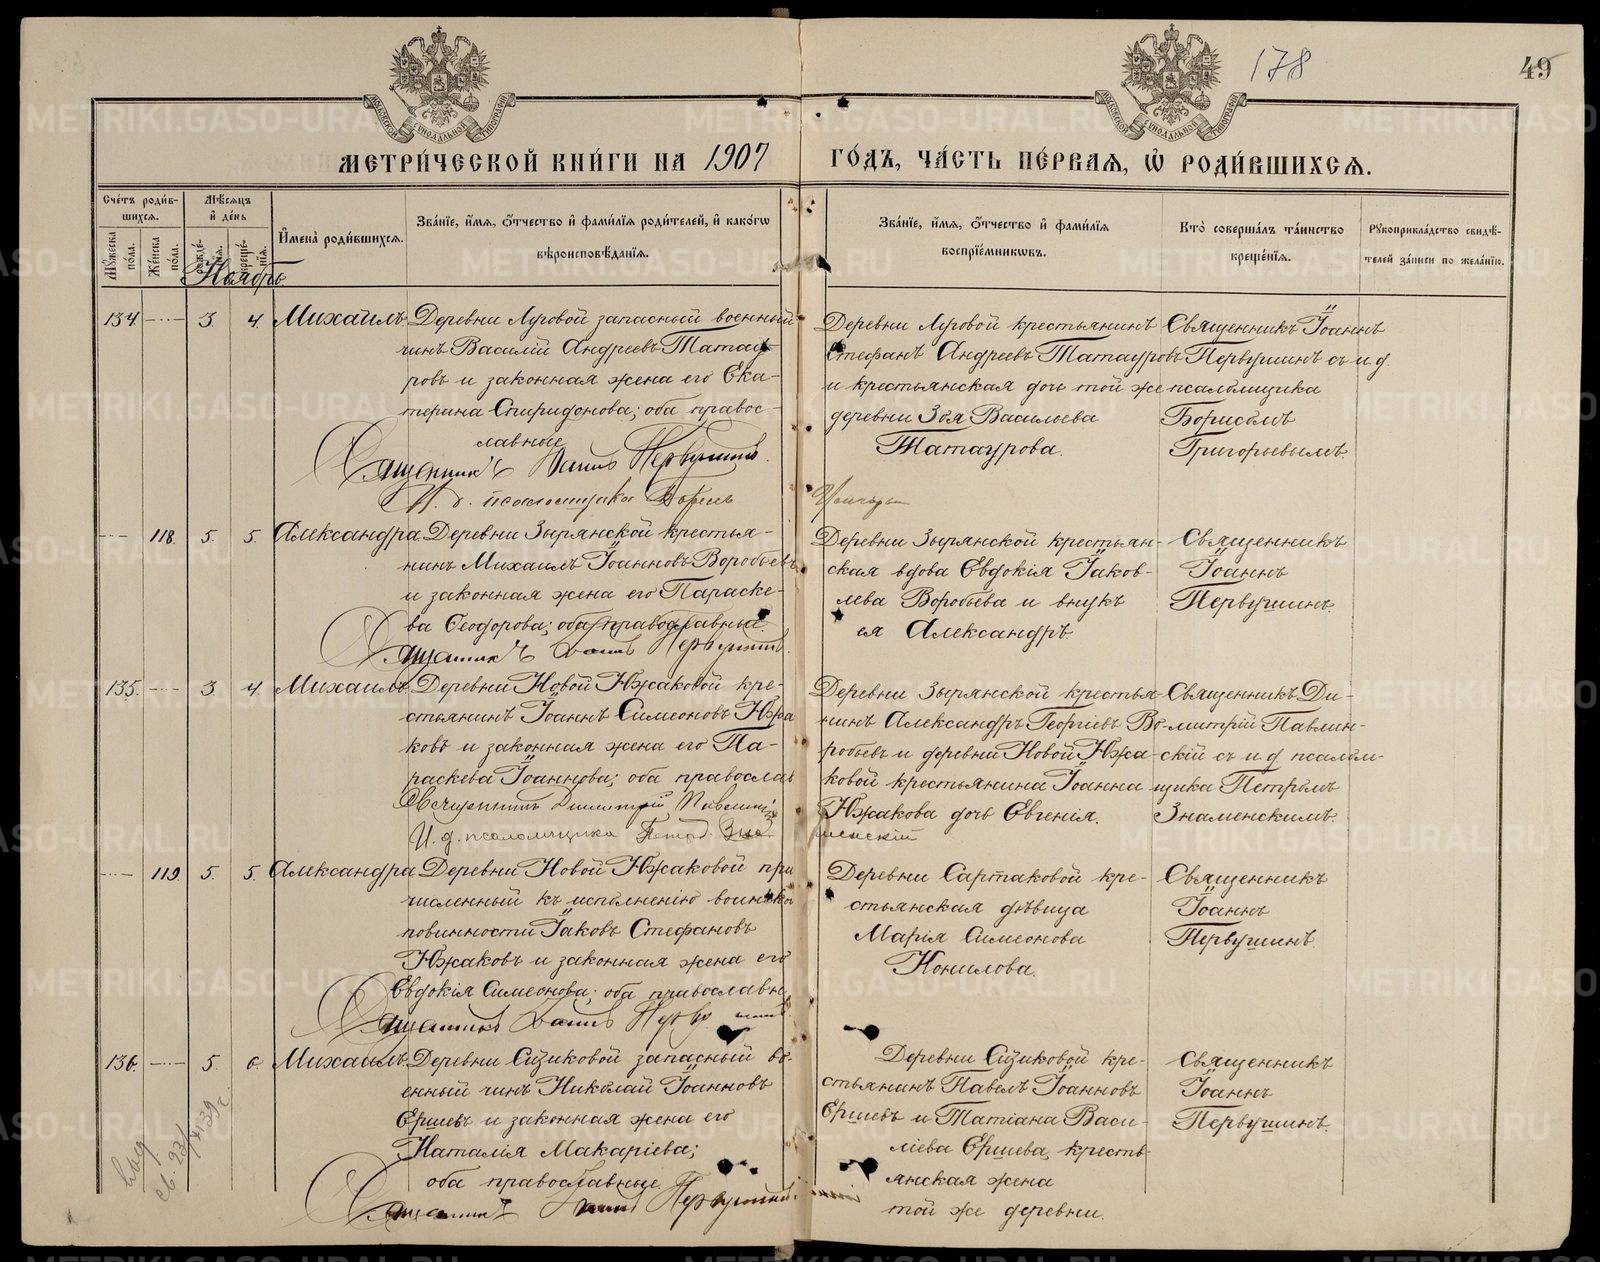 178
49
МЕТРИ́ЧЕСКОЙ КНИ́ГИ НА 1907
ГО́ДЪ, ЧА́СТЬ ПЕ́РВАѦ, Ѡ҆ РОДИ́ВШИХСѦ.
Счетъ роди́вшихсѧ.
Мѣсѧцъ и҆ де́нь
И҆мена̀ роди́вшихсѧ.
Зва́нїе, и҆́мѧ, ѻ҆́тчество и҆ фами́лїѧ роди́телей, и҆ како́гѡ вѣроисповѣ́данїѧ.
Зва́нїе, и҆́мѧ, ѻ҆́тчество и҆ фами́лїѧ воспрїе́мникѡвъ.
Кто̀ соверша́лъ та́инство креще́нїѧ.
Рꙋкоприкла́дство свидѣ́телей за́писи по жела́нїю.
Мꙋжеска по́ла.
Же́нска по́ла.
Ноябрь
134. — 3. 4. Михаилъ.
Деревни Луговой запасный военный
чинъ Василій Андреевъ Татау-
ровъ и законная жена его Ека-
терина Спиридонова; оба правос-
лавные
Священникъ Іоаннъ Первушинъ.
И. д. псаломщика Борисъ
Деревни Луговой крестьянинъ
Стефанъ Андреевъ Татауровъ
и крестьянская дочь той же
деревни Зоя Васильева
Татаурова.
Священникъ Іоаннъ
Первушинъ съ и. д.
псаломщика
Борисомъ
Григорьевымъ.
— 118. 5. 5. Александра
Деревни Зырянской крестья-
нинъ Михаилъ Іоанновъ Воробьевъ
и законная жена его Параске-
ва Ѳеодорова; оба православные.
Священникъ Іоаннъ Первушинъ.
Деревни Зырянской крестьян-
ская вдова Евдокія Іаков-
лева Воробьева и внукъ
ея Александръ.
Священникъ
Іоаннъ
Первушинъ
135. — 3. 4. Михаилъ.
Деревни Новой Южаковой кре-
стьянинъ Іоаннъ Симеоновъ Южа
ковъ и законная жена его Па-
раскева Іоаннова; оба православ
Священникъ Димитрій Павлинскій
И. д. псаломщика Петръ Знаменскій
Деревни Зырянской крестья-
нинъ Александръ Георгіевъ Во-
робьевъ и деревни Новой Южа-
ковой крестьянина Іоанна
Южакова дочь Евгенія.
Священникъ Ди-
митрій Павлин-
скій съ и д псалом-
щика Петромъ
Знаменскимъ.
— 119. 5. 5. Александра
Деревни Новой Южаковой при
численный къ исполненію воинской
повинности Іаковъ Стефановъ
Южаковъ и законная жена его
Евдокія Симеонова; оба православны
Священникъ Іоаннъ Первушинъ
Деревни Сартаковой кре-
стьянская дѣвица
Марія Симеонова
Конилова.
Священникъ
Іоаннъ
Первушинъ.
136. — 5. 6. Михаилъ.
Деревни Сизиковой запасный во-
енный чинъ Николай Іоанновъ
Ершевъ и законная жена его
Наталія Макаріева;
оба православные.
Священникъ Іоаннъ Первушинъ
Деревни Сизиковой кре-
стьянинъ Павелъ Іоанновъ
Ершевъ и Татіана Васи-
ліева Ершева, кресть-
янская жена
той же деревни.
Священникъ
Іоаннъ
Первушинъ.
METRIKI.GASO-URAL.RU